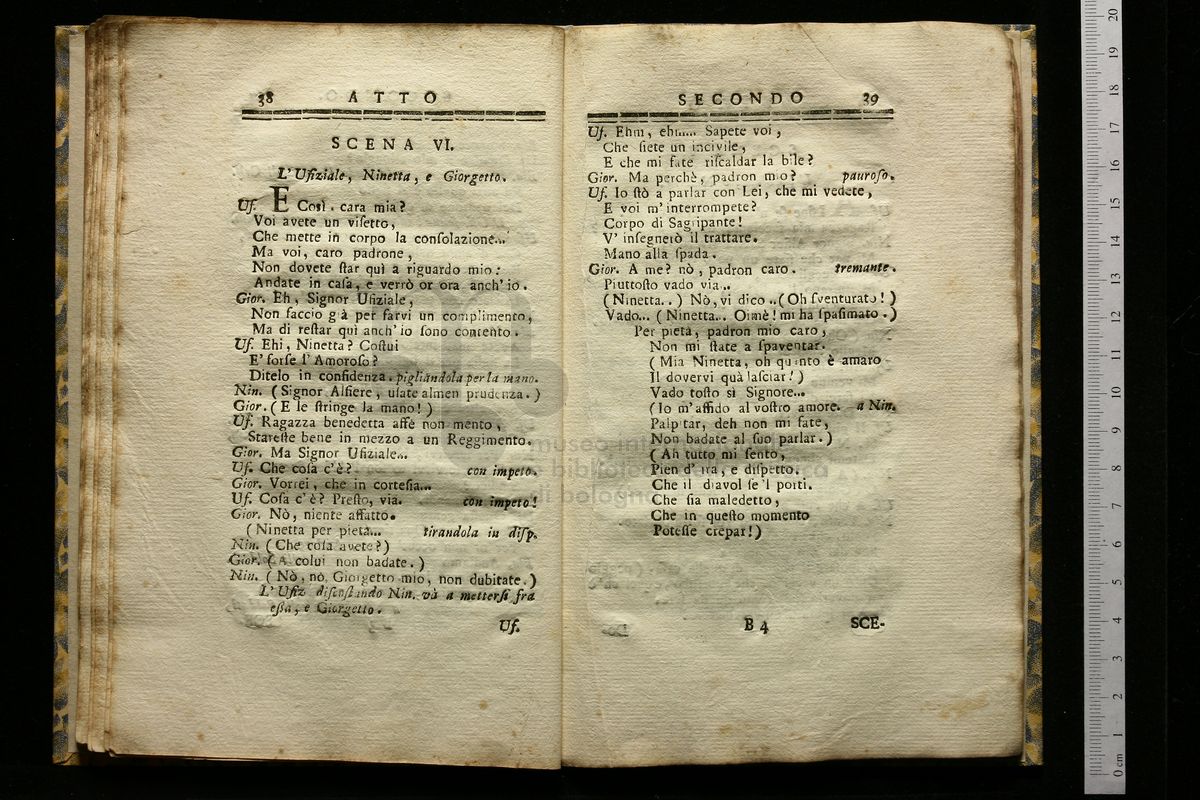 38 ATTO
SCENA VI.
L'Ufiziale, Ninetta, e Giorgetto.
Uf. E Così, cara mia?
Voi avete un viſetto,
Che mette in corpo la conſolazione...
Ma voi, caro padrone,
Non dovete ſtar quì a riguardo mio:
Andate in caſa, e verrò or ora anch' io.
Gior. Eh, Signor Ufiziale,
Non faccio già per farvi un complimento,
Ma di reſtar quì anch' io ſono contento.
Uf. Ehi, Ninetta? Coſtui
E' forſe l' Amoroſo?
Ditelo in confidenza. pigliandola per la mano.
Nin. (Signor Alfiere, uſate almen prudenza.)
Gior. (E le ſtringe la mano!)
Uf. Ragazza benedetta affè non mento,
Stareſte bene in mezzo a un Reggimento.
Gior. Ma Signor Ufiziale...
Uf. Che coſa c'è? con impeto.
Gior. Vorrei, che in corteſia...
Uf. Coſa c' è? Preſto, via. con impeto!
Gior. Nò, niente affatto.
(Ninetta per pietà... tirandola in diſp.
Nin. (Che coſa avete?)
Gior. (A colui non badate.)
Nin. (Nò, nò, Giorgetto mio, non dubitate.)
L' Ufiz diſcoſtando Nin. và a metterſi fra
eſſa, e Giorgetto.
Uf.
SECONDO 39
Uf. Ehm, ehm.... Sapete voi,
Che ſiete un incivile,
E che mi fate riſcaldar la bile?
Gior. Ma perchè, padron mio? pauroſo.
Uf. Io ſtò a parlar con Lei, che mi vedete,
E voi m' interrompete?
Corpo di Sagripante!
V' inſegnerò il trattare.
Mano alla ſpada.
Gior. A me? nò, padron caro. tremante.
Piuttoſto vado via..
(Ninetta..) Nò, vi dico ..(Oh ſventurato!)
Vado... (Ninetta.. Oimè! mi ha ſpaſimato.)
Per pietà, padron mio caro,
Non mi ſtate a ſpaventar.
(Mia Ninetta, oh quanto è amaro
Il dovervi quà laſciar!)
Vado toſto sì Signore...
(Io m' affido al voſtro amore. a Nin.
Palpitar, deh non mi fate,
Non badate al ſuo parlar.)
(Ah tutto mi ſento,
Pien d' ira, e diſpetto.
Che il diavol ſe 'l porti.
Che ſia maledetto,
Che in queſto momento
Poteſſe crepar!)
B 4 SCE-
museo
biblio
di bologna